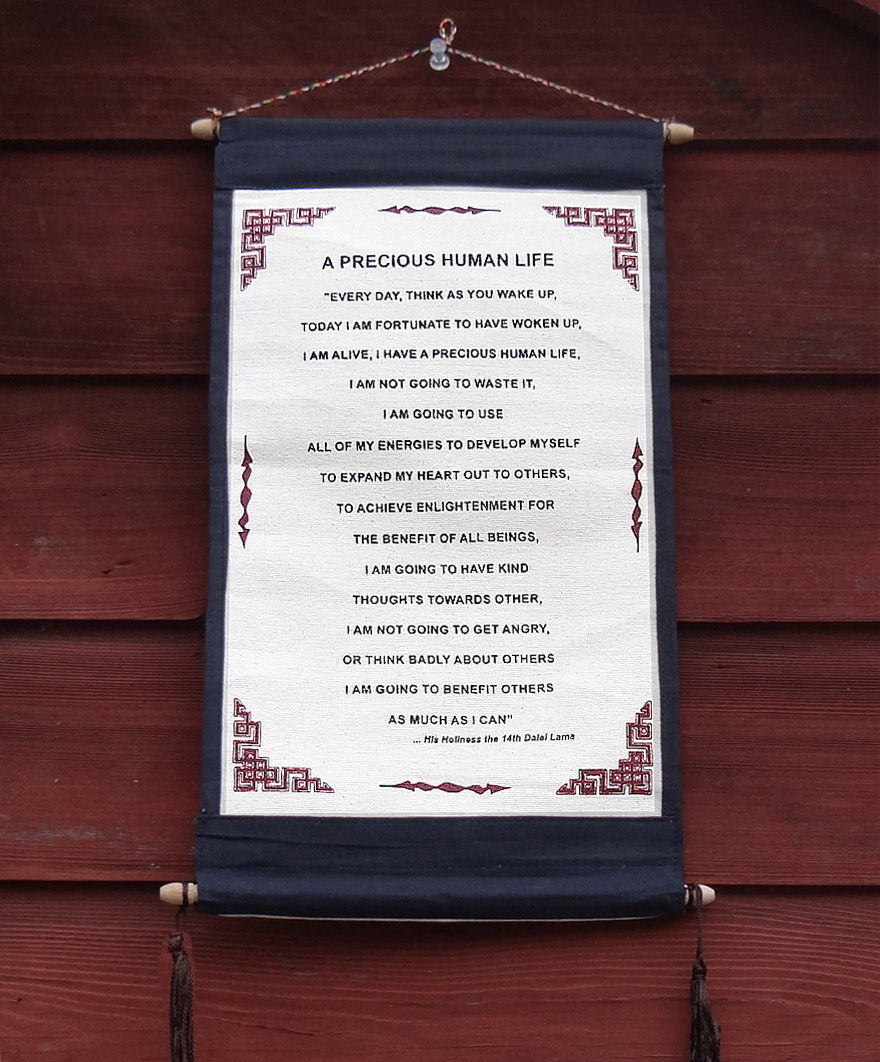 A PRECIOUS HUMAN LIFE
"EVERY DAY, THINK AS YOU WAKE UP,
TODAY I AM FORTUNATE TO HAVE WOKEN UP,
I AM ALIVE, I HAVE A PRECIOUS HUMAN LIFE,
I AM NOT GOING TO WASTE IT,
I AM GOING TO USE
ALL OF MY ENERGIES TO DEVELOP MYSELF
TO EXPAND MY HEART OUT TO OTHERS,
TO ACHIEVE ENLIGHTENMENT FOR
THE BENEFIT OF ALL BEINGS,
I AM GOING TO HAVE KIND
THOUGHTS TOWARDS OTHER,
I AM NOT GOING TO GET ANGRY,
OR THINK BADLY ABOUT OTHERS
I AM GOING TO BENEFIT OTHERS
AS MUCH AS I CAN"
... His Holiness the 14th Dalai Lama